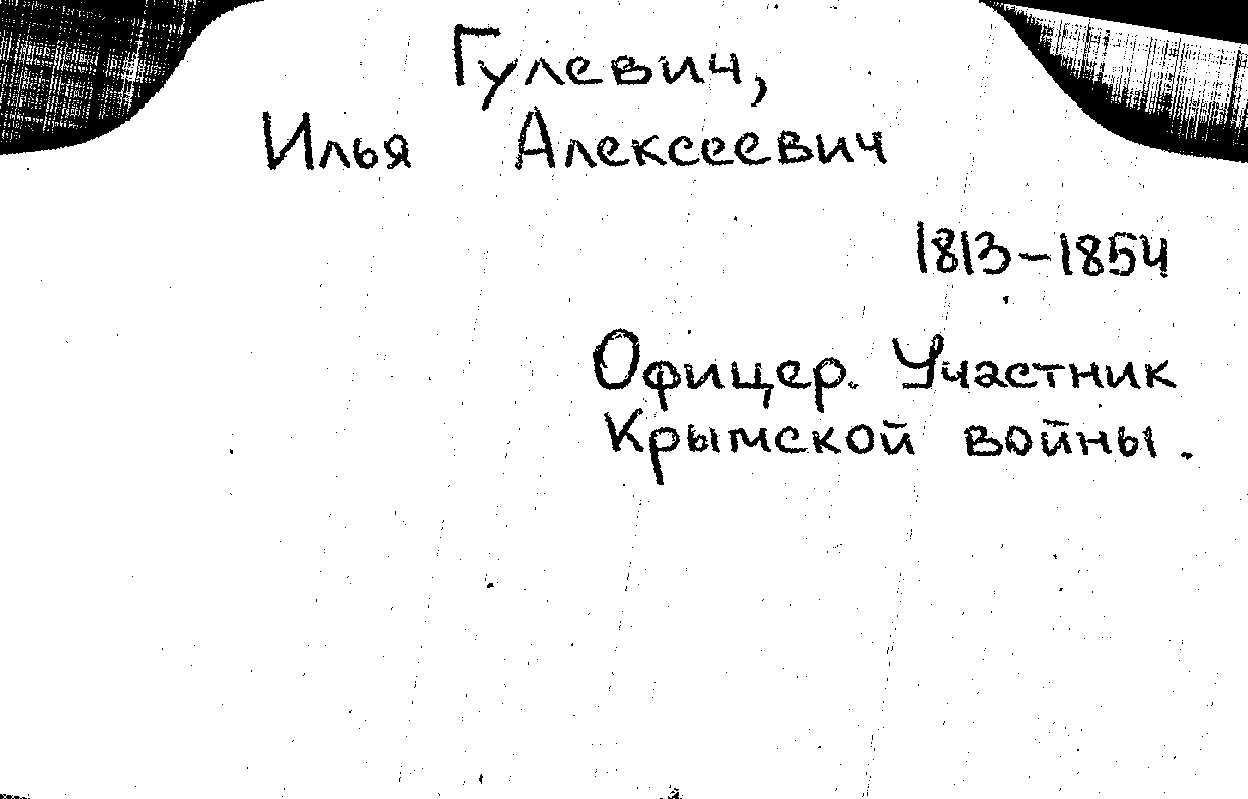 Гулевич,
Илья Алексеевич
1813-1854
Офицер. Участник
Крымской войны.